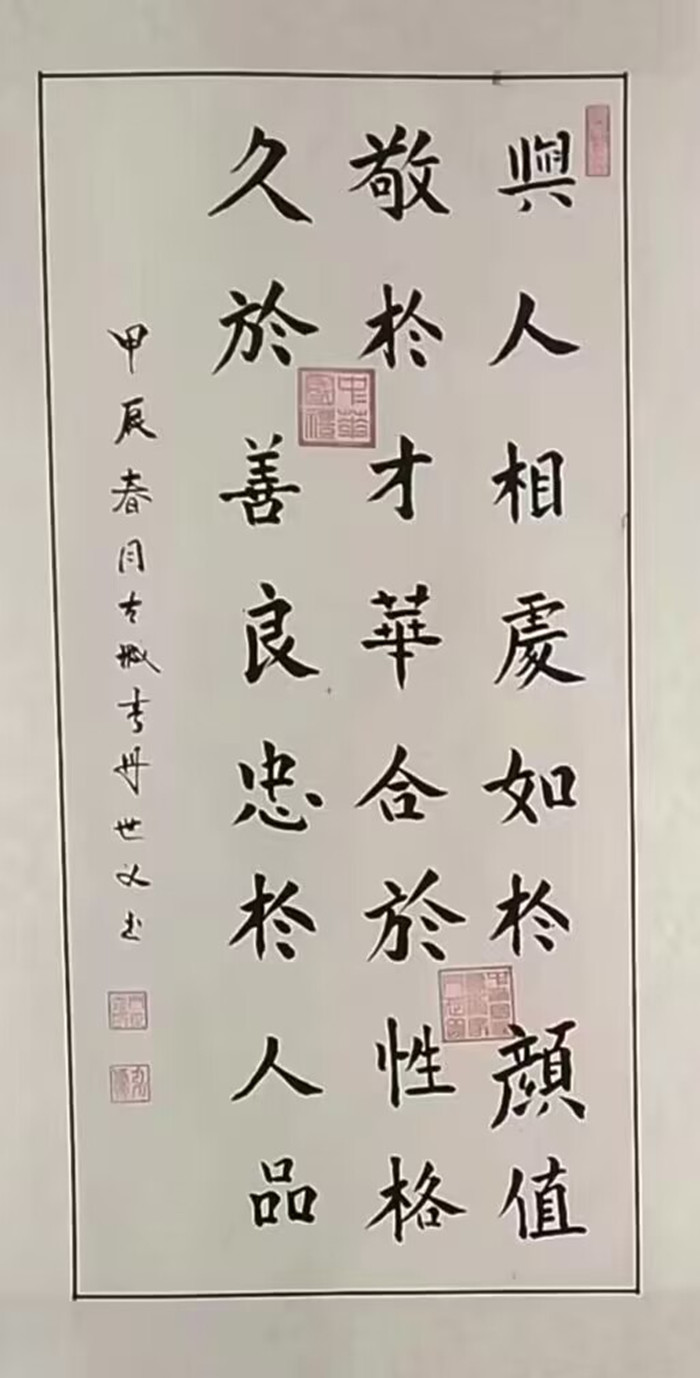 與人相處如於顏值
敬於才華合於性格
久於善良忠於人品
甲辰春月古城李丹世义书
中華國禮